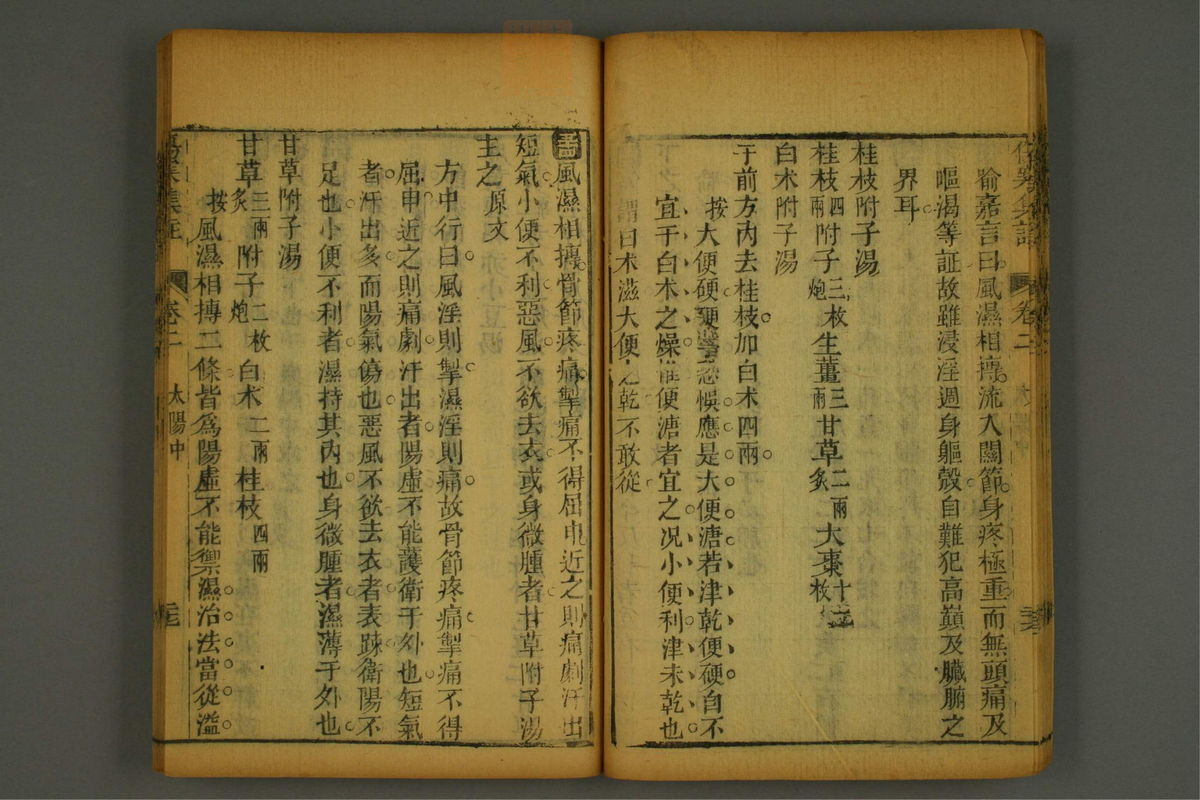 喻嘉言曰風濕相摶流入關節身疼極重而無頭痛及
嘔渴等証故雖浸淫週身軀殼自難犯高巔及臟腑之
界耳
桂枝附子湯
桂枝四兩附子三枚炮生薑三兩甘草二兩炙大棗十二枚
白术附子湯
于前方內去桂枝加白术四兩
按大便硬硬字恐悞應是大便溏若津乾便硬自不
宜于白术之燥惟便溏者宜之况小便利津未乾也
謂曰术滋大便之乾不敢從
卷二
太陽中
風濕相摶骨節疼痛掣痛不得屈申近之則痛劇汗出
短氣小便不利惡風不欲去衣或身微腫者甘草附子湯
主之原文
方中行曰風淫則掣濕淫則痛故骨節疼痛掣痛不得
屈申近之則痛劇汗出者陽虛不能護衛于外也短氣
者汗出多而陽氣傷也惡風不欲去衣者表疎衛陽不
足也小便不利者濕持其內也身微腫者濕薄于外也
甘草附子湯
甘草三兩炙附子二枚炮白术二兩桂枝四兩
按風濕相摶二條皆爲陽虛不能禦濕治法當從溫
集註
卷二
太陽中